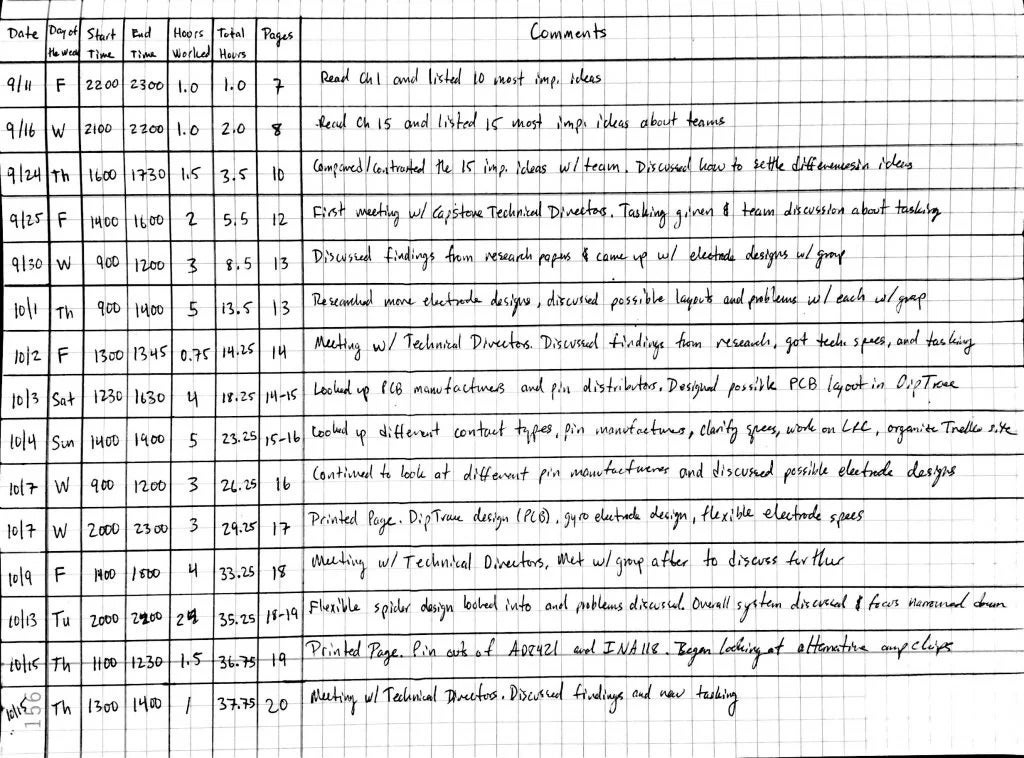 Date Day of the Week Start Time End Time Hours Worked Total Hours Pages Comments
9/11 F 2200 2300 1.0 1.0 7 Read Ch 1 and listed 10 most imp. ideas
9/16 W 2100 2200 1.0 2.0 8 Read Ch 15 and listed 15 most imp. ideas about teams
9/24 Th 1600 1730 1.5 3.5 10 Compared/contrasted the 15 imp. ideas w/ team. Discussed how to settle differences in ideas
9/25 F 1400 1600 2 5.5 12 First meeting w/ Capstone Technical Directors. Tasking given & team discussion about tasking
9/30 W 900 1200 3 8.5 13 Discussed findings from research papers & came up w/ electrode designs w/ group
10/1 Th 900 1400 5 13.5 13 Researched more electrode designs, discussed possible layouts and problems w/ each w/ group
10/2 F 1300 1345 0.75 14.25 14 Meeting w/ Technical Directors. Discussed findings from research, got tech specs, and tasking
10/3 Sat 1230 1630 4 18.25 14-15 Looked up PCB manufacturers and pin distributors. Designed possible PCB layout in DipTrace
10/4 Sun 1400 1900 5 23.25 15-16 Looked up different contact types, pin manufactures, clarify specs, work on LRC, organize Trello site
10/7 W 900 1200 3 26.25 16 Continued to look at different pin manufactureres and discussed possible electrode designs
10/7 W 2000 2300 3 29.25 17 Printed Page. DipTrace design (PCB), gyro electrode design, flexible electrode specs
10/9 F 1400 1800 4 33.25 18 Meeting w/ Technical Directors, Met w/ group after to discuss further
10/13 Tu 2000 2200 2 35.25 18-19 Flexible spider design looked into and problems discussed. Overall system discussed & focus narrowed down
10/15 Th 1100 1230 1.5 36.75 19 Printed Page. Pin outs of AD8421 and INA118. Began looking at alternative amp chips
10/15 Th 1300 1400 1 37.75 20 Meeting w/ Technical Directors. Discussed findings and new tasking
156